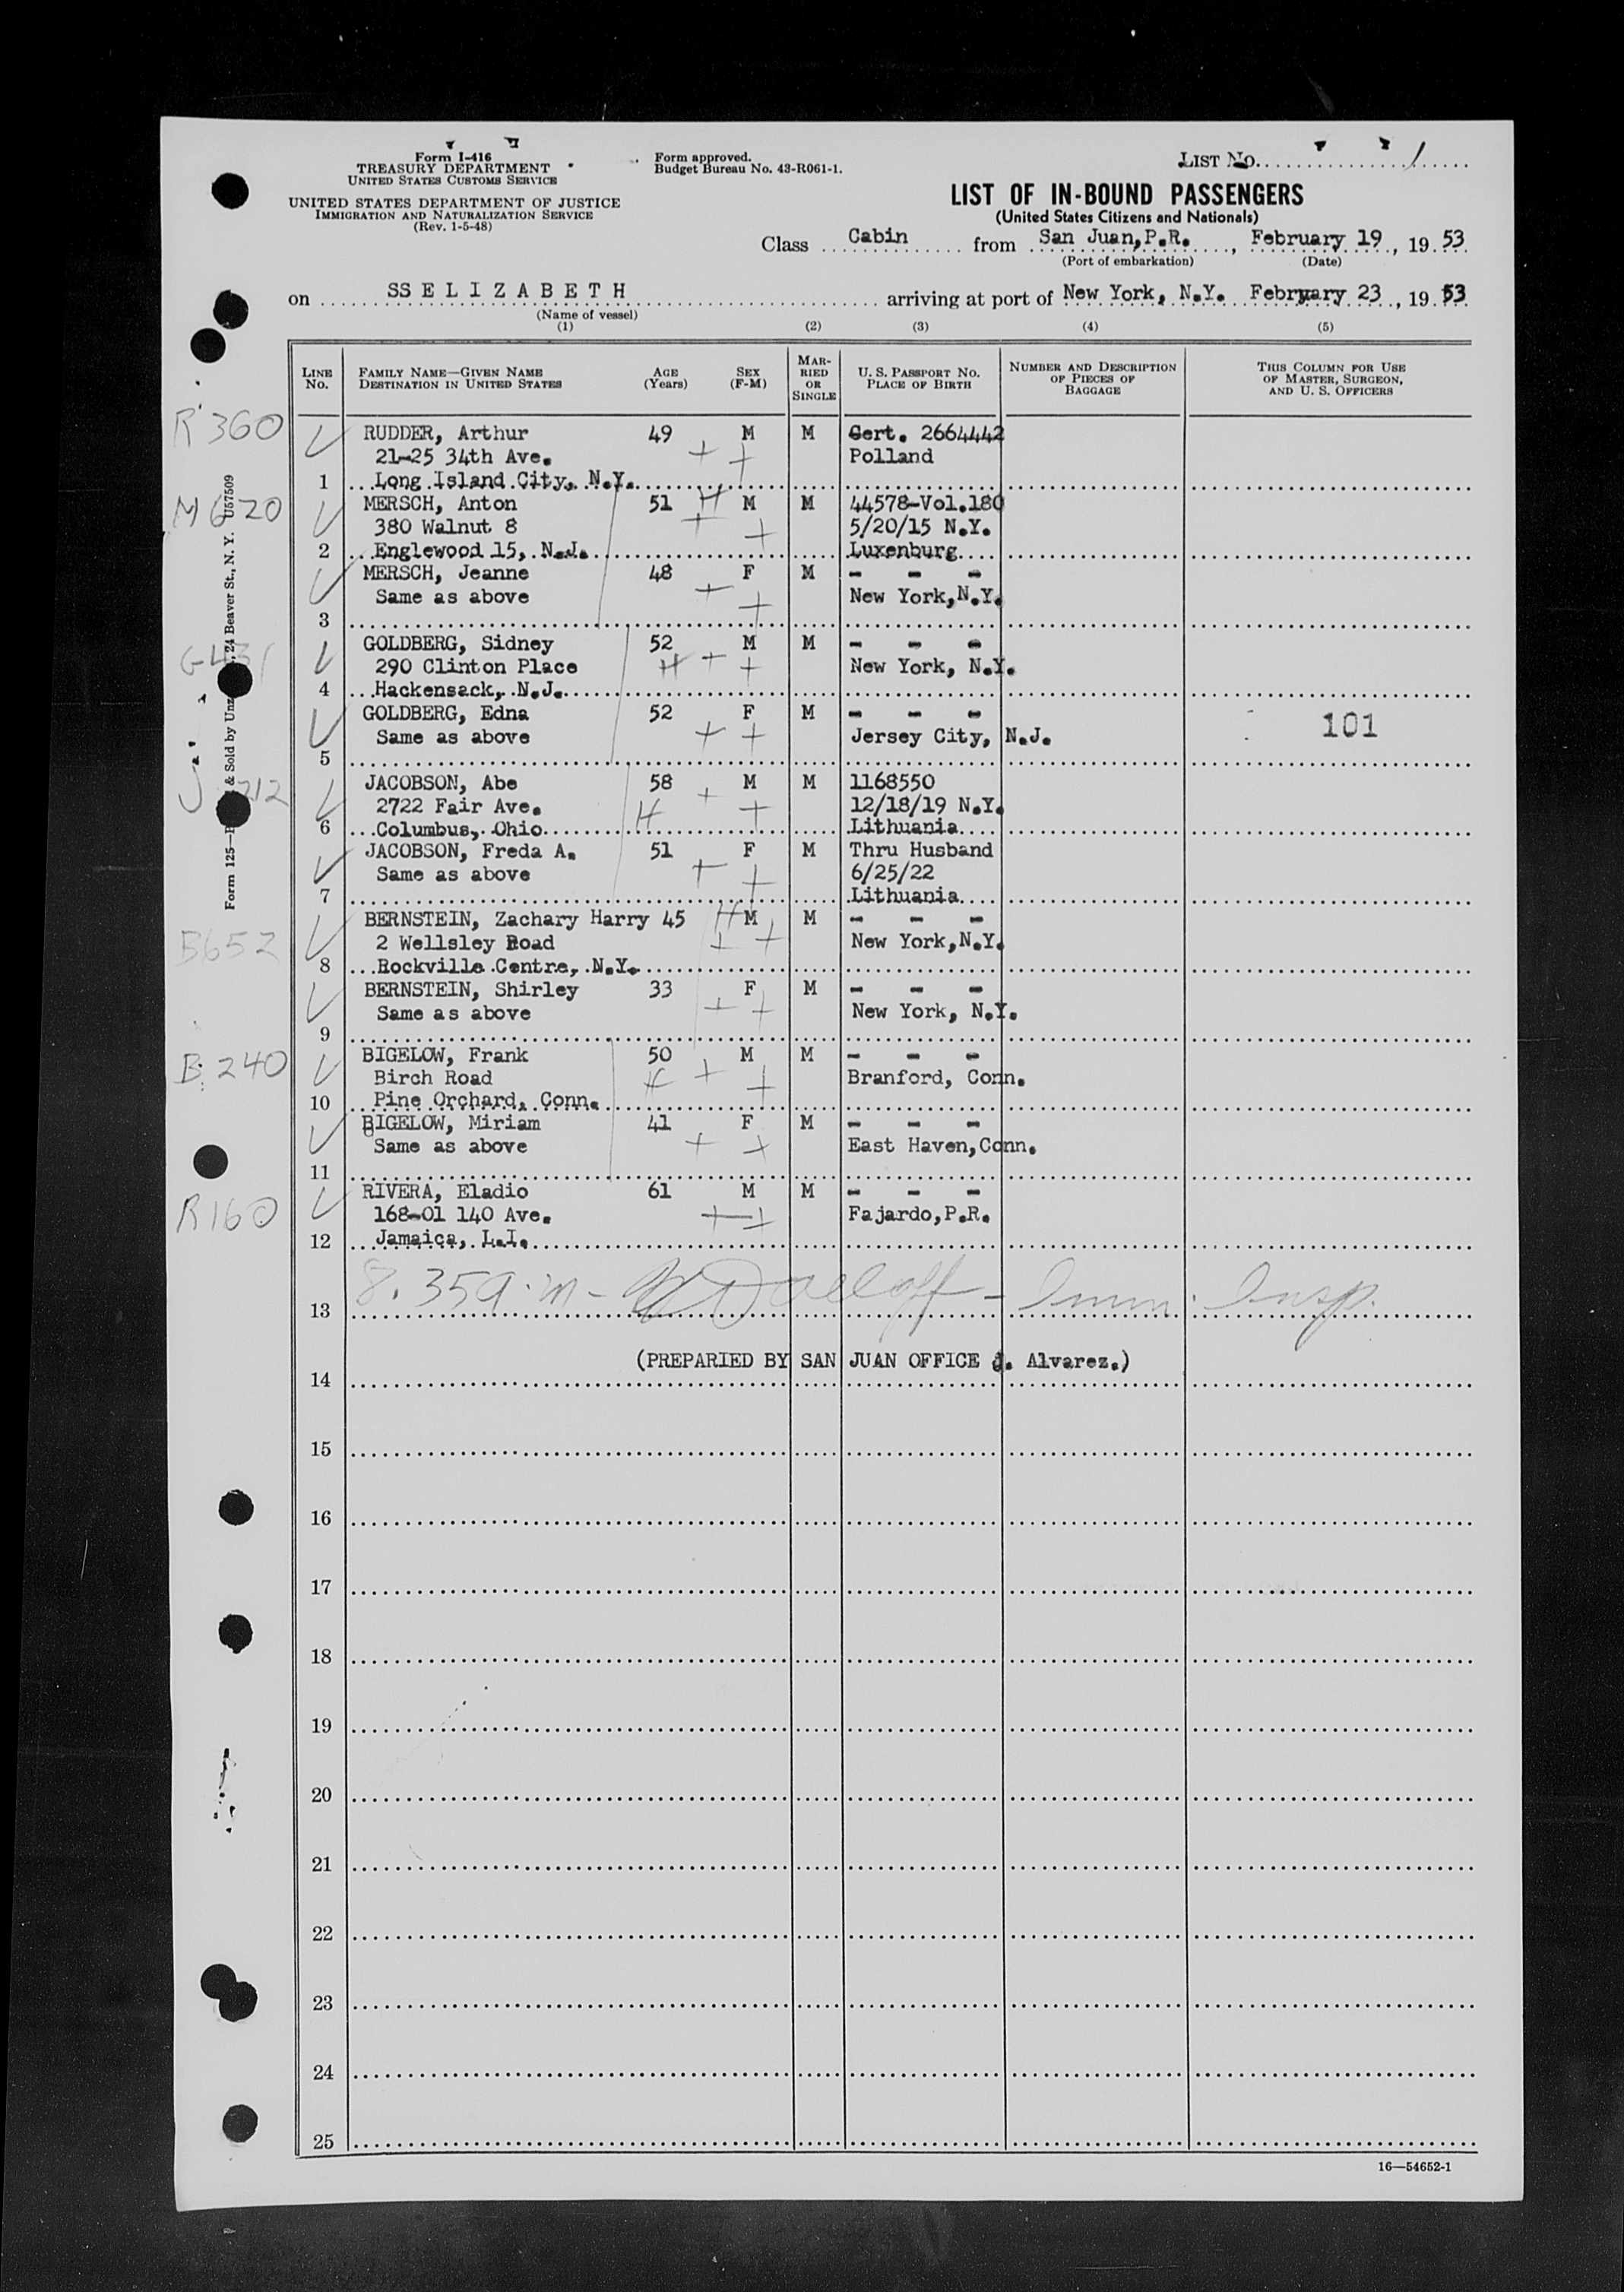 Form I-416
TREASURY DEPARTMENT
UNITED STATES CUSTOMS SERVICE
UNITED STATES DEPARTMENT OF JUSTICE
IMMIGRATION AND NATURALIZATION SERVICE
(Rev. 1-5-48)
Form approved.
Budget Bureau No. 43-R061-1.
LIST No. 1
LIST OF IN-BOUND PASSENGERS
(United States Citizens and Nationals)
Class Cabin from San Juan, P.R., February 19, 19 53
(Port of embarkation) (Date)
on SS E L I Z A B E T H arriving at port of New York, N.Y. February 23, 19 53
(Name of vessel)
(1) (2) (3) (4) (5)
LINE No. FAMILY NAME—GIVEN NAME DESTINATION IN UNITED STATES AGE (Years) SEX (F-M) MARRIED OR SINGLE U. S. PASSPORT NO. PLACE OF BIRTH NUMBER AND DESCRIPTION OF PIECES OF BAGGAGE THIS COLUMN FOR USE OF MASTER, SURGEON, AND U. S. OFFICERS
R 360 RUDDER, Arthur 49 M M Cert. 2664442
21-25 34th Ave. Polland
1 Long Island City, N.Y.
M 620 MERSCH, Anton 51 H M M 44578-Vol.180
380 Walnut 8 5/20/15 N.Y.
2 Englewood 15, N.J. Luxenburg
MERSCH, Jeanne 48 F M - - -
Same as above New York, N.Y.
3
G 431 GOLDBERG, Sidney 52 M M - - -
290 Clinton Place H New York, N.Y.
4 Hackensack, N.J.
GOLDBERG, Edna 52 F M - - - 101
Same as above Jersey City, N.J.
5
J 212 JACOBSON, Abe 58 M M 1168550
2722 Fair Ave. H 12/18/19 N.Y.
6 Columbus, Ohio Lithuania
JACOBSON, Freda A. 51 F M Thru Husband
Same as above 6/25/22
7 Lithuania
BERNSTEIN, Zachary Harry 45 H M M - - -
B652 2 Wellsley Road New York, N.Y.
8 Rockville Centre, N.Y.
BERNSTEIN, Shirley 33 F M - - -
Same as above New York, N.Y.
9
B 240 BIGELOW, Frank 50 M M - - -
Birch Road H Branford, Conn.
10 Pine Orchard, Conn.
BIGELOW, Miriam 41 F M - - -
Same as above East Haven, Conn.
11
R160 RIVERA, Eladio 61 M M - - -
168-01 140 Ave. Fajardo, P.R.
12 Jamaica, L.I.
8.35 a.m - Imm. Insp.
13
(PREPARIED BY SAN JUAN OFFICE J. Alvarez.)
14
15
16
17
18
19
20
21
22
23
24
25
16—54652-1
Form 125— & Sold by Unz , 24 Beaver St., N. Y. U57509